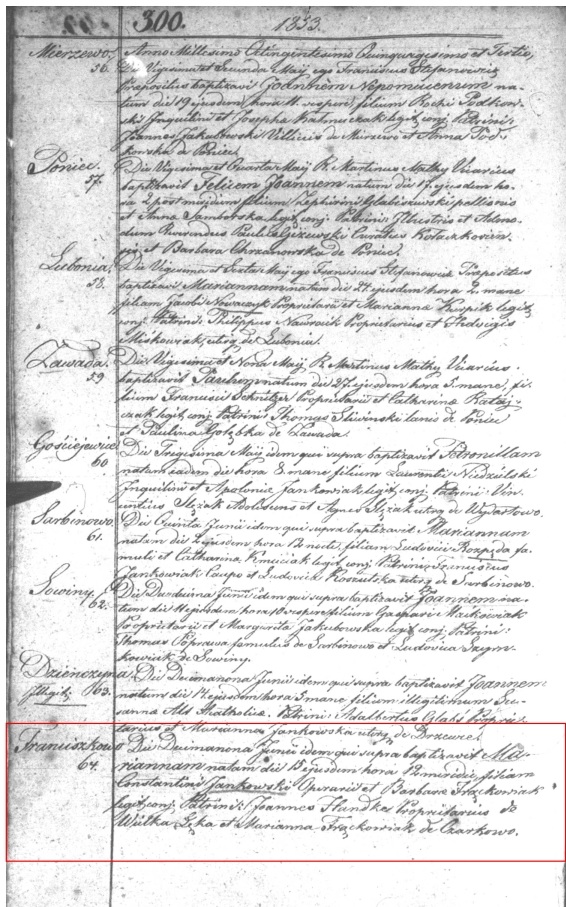 300. 1853.
Mierzewo. Anno Millesimo Octingentesimo Quinquagesimo et Tertio,
56. Die Vigesima et Secunda Maij ego Franciscus Stefanowicz
Praepositus baptizavi Joannem Nepomucenum na-
tum die 19 ejusdem hora 11 vespere filium Rochi Podkow-
ski Inquilini et Josepha Kaźmierczak legit. conj. Patrini:
Joannes Jakubowski Villicus de Mierzewo et Anna Pod-
kowska de Poniec.
Poniec. Die Vigesima et Quarta Maij R. Martinus Mathy Vicarius
57. baptizavit Felicem Joannem natum die 17. ejusdem ho-
ra 2 post meridiem filium Zephirini Glabiszewski pellionis
et Anna Samborska legit. conj. Patrini: Illustris et Admo-
dum Reverendus Curatus
et Barbara Chrzanowska de Poniec.
Lubonia. Die Vigesima et Sexta Maij ego Franciscus Stefanowicz Praepositus
58. baptizavi Mariannam natam die 24 ejusdem hora 2 mane
filiam Jacobi Nowaczyk Proprietarii et Marianna legit.
conj. Patrini: Philippus Nawrocik Proprietarius et Hedvigis
Miskowiak, utrq de Lubonia.
Zawada. Die Vigesima et Nona Maij R. Martinus Mathy Vicarius
59. baptizavit Paulum natum die 27. ejusdem hora 5. mane, fi-
lium Francisci Schnitzer Proprietarii et Catharina Rataj-
czak legit. conj. Patrini: Thomas Śliwinski lanio de Poniec
et Paulina Gołębka de Zawada.
Gościejewice Die Trigesima Maij idem qui supra baptizavit Petronillam
60. natam eadem die hora 8 mane filiam Laurentii Niedzielski
Inquilini et Apolonia Jankowiak legit. conj. Patrini: Vin-
centius Ślęzak Adolescens et Agnes Ślęzak utrq de Wydartowo.
Sarbinowo. Die Quinta Junii idem qui supra baptizavit Mariannam
61. natam die 2 ejusdem hora 12 nocte, filiam Ludovici Rozpida fa-
muli et Catharina Kmieciak legit. conj. Patrini:
Jankowiak Caupo et Ludovica Koszulska utrq de Sarbinowo.
Sowiny. Die Duodecima Junii idem qui supra baptizavit Joannem na-
62. tum die 11 ejusdem hora 10 vespere filium Gaspari Maćkowiak
Proprietarii et Margarita Jakubowska legit. conj. Patrini:
Thomas Poprawa famulus de Sarbinowo et Ludovica Szym-
kowiak de Sowiny.
Dzienczyna, Die Decimanona Junii idem qui supra baptizavit Joannem
illegit. 63. natum die 14 ejusdem hora 3 mane filium illegitimum Su-
sanna Catholica. Patrini: Adalbertus Glabs Proprie-
tarius et Marianna Jankowska utrq de Drzewce.
Franciszkowo Die Decimanona Junii idem qui supra baptizavit Ma-
64. riannam natam die 15 ejusdem hora 12 meridie, filiam
Constantini Jankowski Operarii et Barbara Frąckowiak
legit. conj. Patrini: Joannes Proprietarius de
Wielka Łęka et Marianna Frąckowiak de Czarkowo.